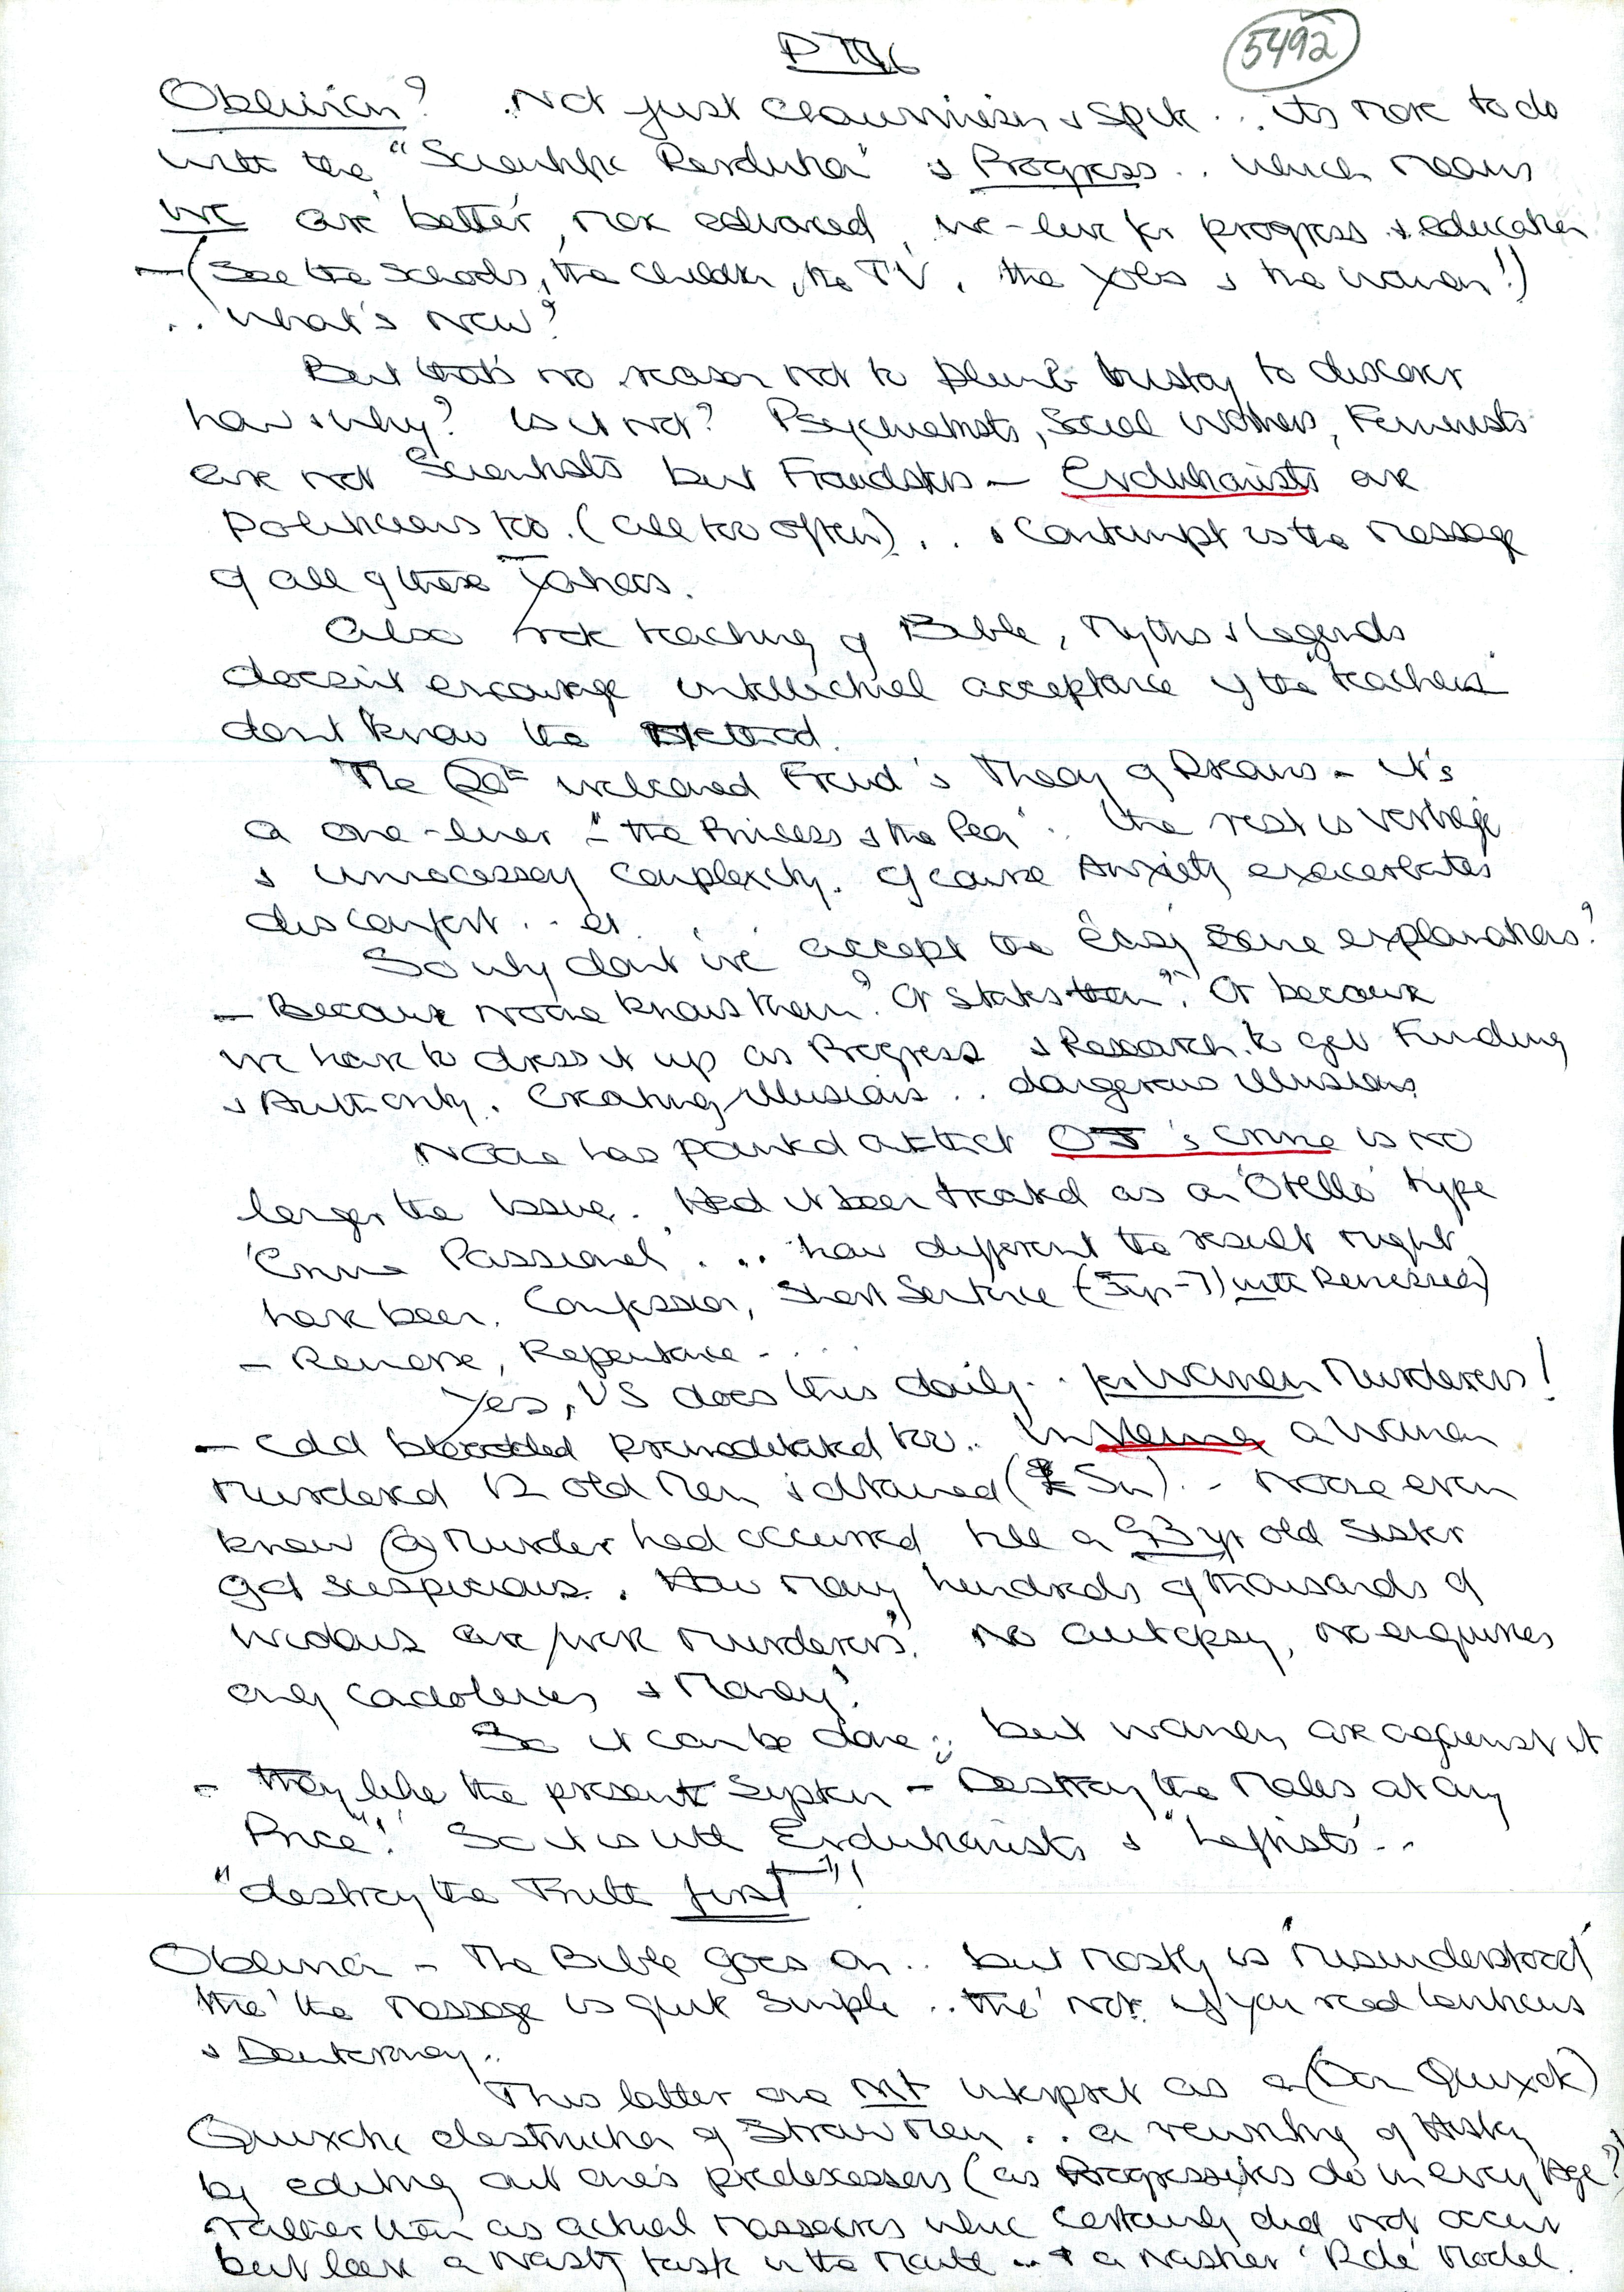 5492
Oblivion? Not just Chauvinism & Spite... its more to do
with the "Scientific Revolution" & Progress.. which means
we are better, more advanced, we live for progress & education
—(See the Schools, the Children, the TV, the Jobs & the women!)
.. what's New?
But that's no reason not to plumb history to discover
how & why? Is it not? Psychiatrists, Social Workers, Feminists
are not Scientists but Fraudsters — Evolutionists are
Politicians too. (all too often).. & Contempt is the message
of all of these
Also teaching of Bible, Myths & Legends
doesn't encourage intellectual acceptance if the "teachers"
dont know the Method.
The welcomed Freud's Theory of Dreams - It's
a one-liner - "the Princess & the Pea".. the rest is verbiage
& unnecessary complexity. Of course Anxiety exacerbates
discomfort..
So why don't we accept the easy sane explanations?
— Because No one knows them? Or States them? Or because
we have to dress it up as Progress & Research to get Funding
& Authority. Creating illusions.. dangerous illusions
No one has pointed out that OJ's crime is no
longer the issue. Had it been treated as an 'Otello' type
'Crime Passional'... how different the result might
have been. Confession, Short Sentence (5yr-7) with Remission)
— Remorse, Repentance - ....
Yes, US does this daily.. for Women Murderers!
— Cold blooded premeditated too.. In a Woman
murdered 12 old Men & drained ( 5m).. No one even
knew (a) Murder had occurred till a 93 yr old Sister
got suspicious. How many hundreds of thousands of
widows are/were murderers? No autopsy, no enquiries
only condolences & Money!
So it can be done; but women are against it
- They like the present System - "Destroy the Males at any
Price"! So it is with Evolutionists & "Leftists"..
"destroy the Truth first"!
Oblivion - The Bible goes on.. but mostly is 'misunderstood'
tho' the message is quite simple.. tho' not if you read Leviticus
& Deuteronomy..
This latter one must interpret as a (Don Quixote)
Quixotic destruction of Straw Men.. a rewriting of History
by editing out one's predecessors (as Progressives do in every Age?)
rather than as actual massacres which certainly did not occur
but leave a nasty taste in the mouth... & a nastier 'Role' Model.